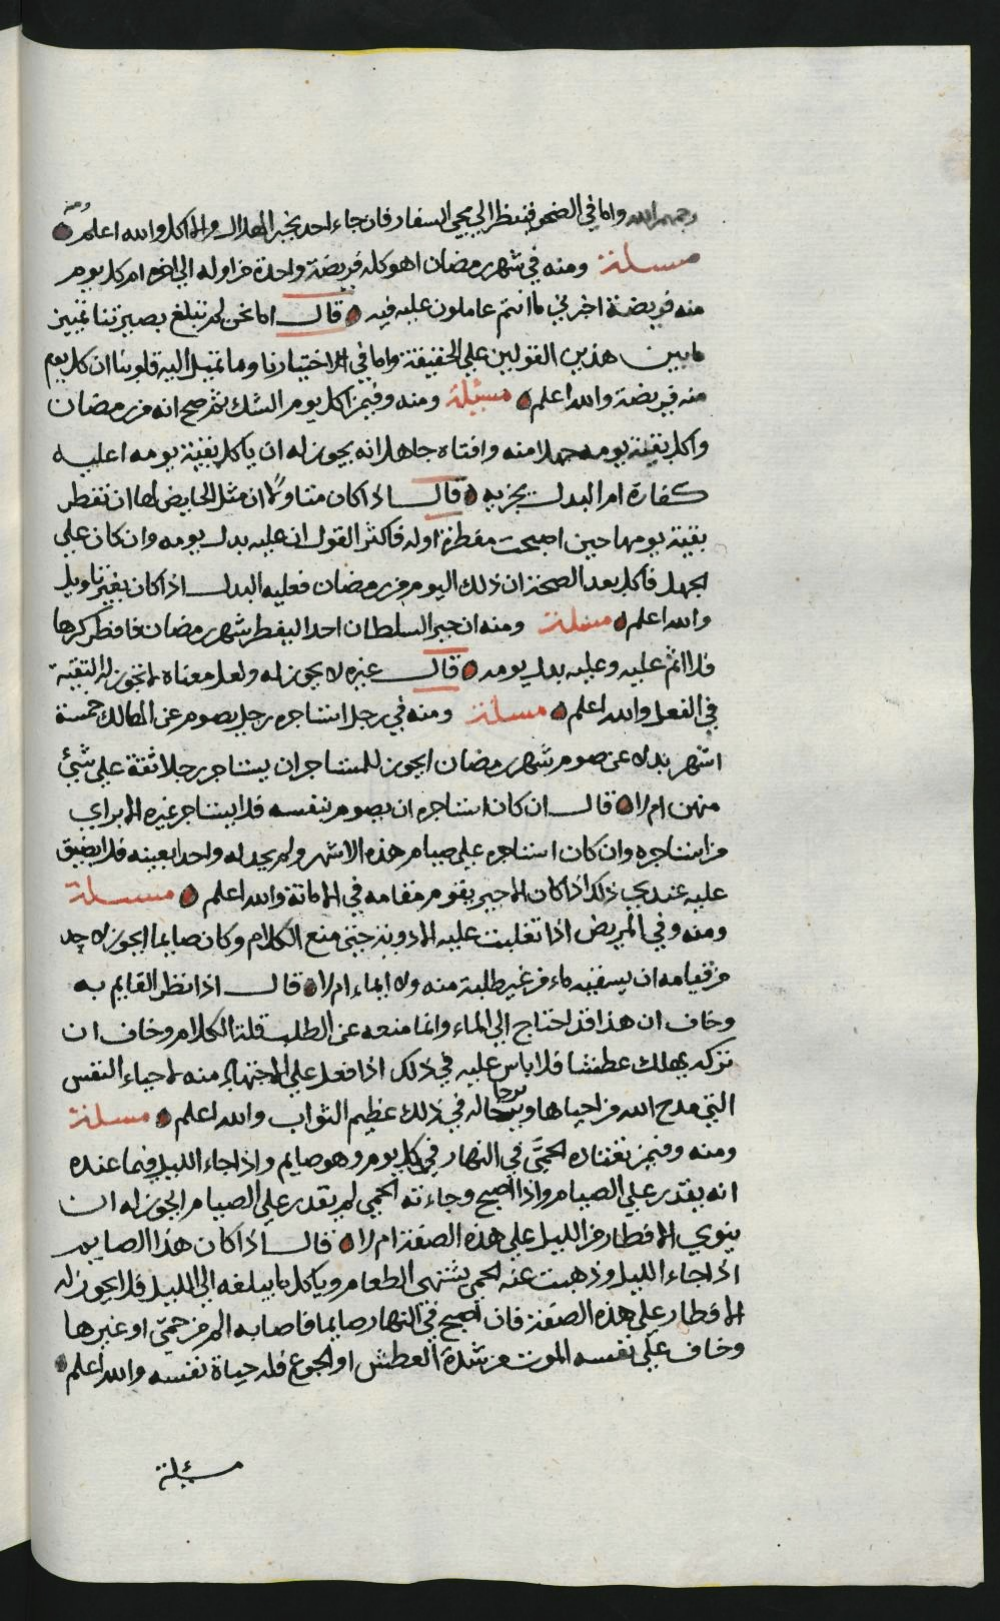 رحمهم الله واما في الضحى فتنظر الي مجي السفار فان جاء احد بخبر الهلال والا اكل والله اعلم ومنه
مسئلة ومنه في شهر رمضان اهو كله فريضة واحدة من اوله الي اخره ام كل يوم
منه فريضة اخبرني ما انتم عاملون عليه فيه قال اما نحن لم تبلغ بصيرتنا تمييز
ما بين هذين القولين علي الحقيقة واما في اختيارنا وما تميل اليه قلوبنا ان كل يوم
منه فريضة والله اعلم مسئلة ومنه وفيمن اكل يوم الشك ثم صح انه من رمضان
واكل بقية يومه جهلا منه وافتاه جاهل انه يجوز له ان ياكل بقية يومه اعليه
كفارة ام البدل يجزيه قال اذا كان متاولا ان مثل الحايض لها ان تفطر
بقية يومها حين اصبحت مفطرة اوله فاكثر القول ان عليه بدل يومه وان كان علي
الجهل فاكل بعد الصحة ان ذلك اليوم من رمضان فعليه البدل اذا كان بغير تاويل
والله اعلم مسئلة ومنه ان جبر السلطان احدا ليفطر شهر رمضان فافطر كرها
فلا اثم عليه وعليه بدل يومه قال غيره لا يجوز له ولعل معناه لا تجوز له التقية
في الفعل والله اعلم مسئلة ومنه في رجل استاجره رجل يصوم عن الهالك خمسة
اشهر بدلا عن صوم شهر رمضان ايجوز للمستاجر ان يستاجر رجلا ثقة علي شيئ
منهن ام لا قال ان كان استاجره ان يصوم بنفسه فلا يستاجر غيره الا براي
من استاجره وان كان استاجره علي صيام هذه الاشهر ولم يحد له واحدا بعينه فلا يضيق
عليه عندي ذلك اذا كان الاجير يقوم مقامه في الامانة والله اعلم مسئلة
ومنه وفي المريض اذا تغلبت عليه الادوية حتى منع الكلام وكان صايما ايجوز لاحد
من قيامه ان يسقيه ماء من غير طلبة منه ولا ايماء ام لا قال اذا نظر القايم به
وخاف ان هذا قد احتاج الي الماء وانما منعه عن الطلب قلة الكلام وخاف ان
تركه يهلك عطشا فلا باس عليه في ذلك اذا فعل علي الاجتهاد منه لاحياء النفس
التي مدح الله من احياها ويرجا له في ذلك عظيم الثواب والله اعلم مسئلة
ومنه وفيمن تعتاده الحمَّى في النهار في كل يوم وهو صايم واذا جاء الليل فيما عنده
انه يقدر علي الصيام واذا اصبح وجاءته الحمي لم يقدر علي الصيام ايجوز له ان
ينوي الافطار من الليل علي هذه الصفة ام لا قال اذا كان هذا الصايم
اذا جاء الليل وذهبت عنه الحمى يشتهى الطعام وياكل ما يبلغه الي الليل فلا يجوز له
الافطار علي هذه الصفة فان اصبح في النهار صايما فاصابه الم من حمّي او غيرها
وخاف علي نفسه الموت من شدة العطش او الجوع فله حياة نفسه والله اعلم
مسئلة